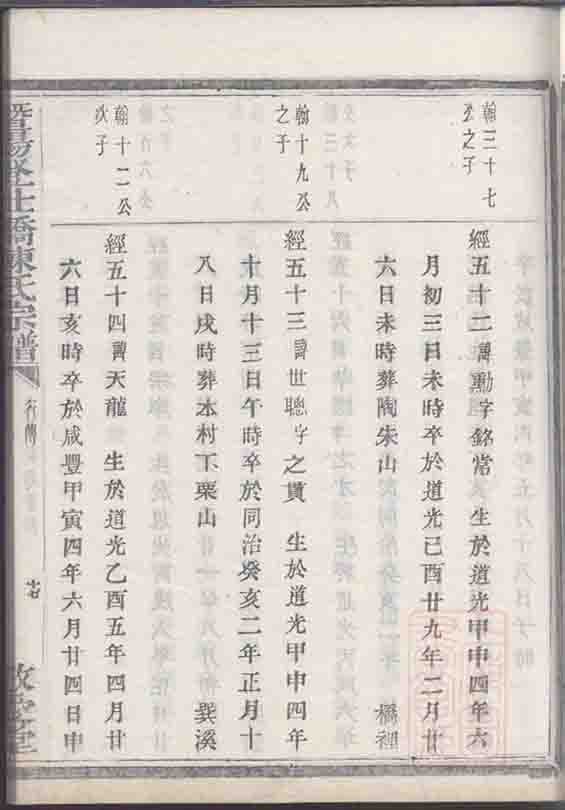 翰三十七
公之子
經五十二諱勳字銘常 生於道光甲申四年六
月初三日未時卒於道光己酉廿九年二月廿
六日未時葬陶朱山 橋裡
翰十九公
之子
經五十三諱世聰字之貫 生於道光甲申四年
十月十三日午時卒於同治癸亥二年正月十
八日戌時葬本村下栗山 巽溪
翰十二公
次子
經五十四諱天龍 生於道光乙酉五年四月廿
六日亥時卒於咸豐甲寅四年六月廿四日申
暨陽 仕橋陳氏宗譜
行傳